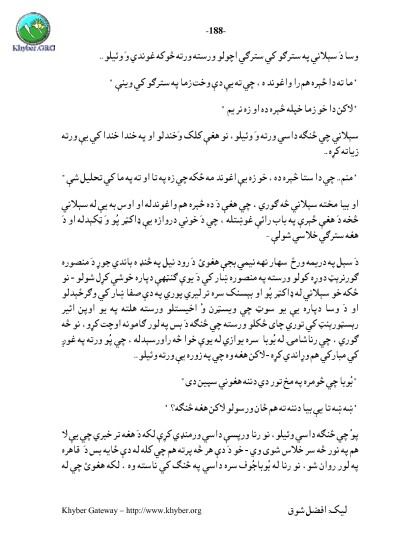 -188-
Khyber.ORG
وسا دَ سېلاني په سترګو کي سترګي اچولو ورسته ورته څوکه غوندي وَ وئيلو..
" ما ته دا خبره هم را واغونده ، چي ته يې دې وخت زما په سترګو کي وينې "
" لاکن دا خو زما خپله خبره ده او زه نريم "
سېلاني چي څنګه داسي ورته وَ وئيلو ، نو هغې کلک وَخندلو او په خندا خندا کي يې ورته زياته کړه..
" منم.. چي دا ستا خبره ده ، خو زه يې اغوندمه ځکه چي زه په تا او ته په ما کي تحليل شې "
او بيا مخته سېلاني څه ګوري ، چي هغې دَ ده خبره هم واغوندله او اوس يې له سېلاني څخه دَ هغې خبرې په باب رائې غوښتله ، چي دَ خونې دروازه يې ډاکټر پُو وَ ټکبدله او دَ هغه سترګي خلاسي شولې -
دَ سېل په دريمه ورځ سهار نهه نيمي بجې هغوئ دَ رود نيل په څنډه باندي جوړ دَ منصوره ګورنرېټ دوره کولو ورسته په منصوره ښار کي دَ يوې ګنټهې دپاره خوشي کړل شولو - نو ځکه خو سېلاني له ډاکټر پُو او بېسنک سره تر لېري پوري په دې صفا ښار کي وګرځېدلو او دَ وسا دپاره يې يو سوټ چي ويسټرن وُ اخيستلو ورسته هلته په يو اوپن ائير رېسټورېنټ کي توري چای څکلو ورسته چي څنګه دَ بس په لور ګامونه اوچت کړو ، نو څه ګوري ، چي رنا شامۍ له يُوبا سره يوازي له يوې خوا څه راورسېدله ، چي پُو ورته په غوږ کي مبارکي هم وړاندي کړه - لاکن هغه وه چي په زوره يې ورته وئيلو..
"يُوبا چي څومره په مخ تور دي دننه هغونې سپين دی "
" ښه ښه تا يې بيا دننه ته هم ځان ورسولو لاکن هغه څنګه؟ "
پُو چي څنګه داسي وئيلو ، نو رنا ورپسې داسي ورمنډي کړې لکه دَ هغه تر خبري چي بې لا هم په تور څه سر خلاس شوی وي - خو دَ دې هر څه پرته هم چي کله له دې ځايه بس دَ قاهره په لور روان شو ، نو رنا له يُوباجُوف سره داسي په څنګ کي ناسته وه ، لکه هغوئ چي له
ليک: افضل شوق
Khyber Gateway – http://www.khyber.org